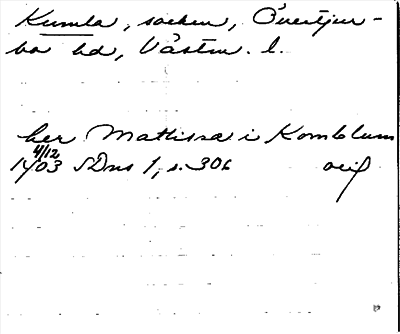 Kumla, socken, Övertjur-
bo hd, Västm. l.
her Mattissa i Komblum
4/12
1403 SDns 1, s. 306 orig